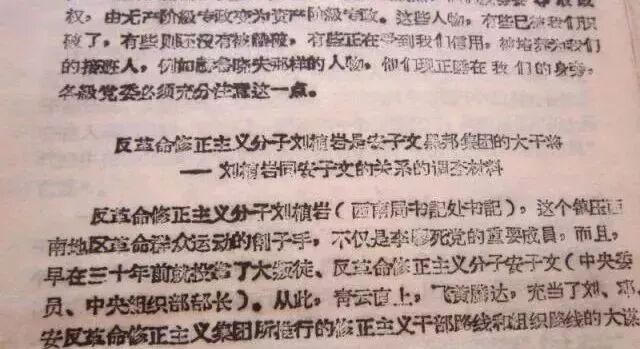 权，由无产阶级专政变为资产阶级专政。这些人物，有些已被我们识
破了，有些则还没有被识破，有些正在受到我们信用，被培养为我们
的接班人，例如赫鲁晓夫那样的人物，他们现正睡在我们的身旁，
各级党委必须充分注意这一点。
反革命修正主义分子刘植岩是安子文黑邦集团的大干将
——刘植岩同安子文的关系的调查材料
反革命修正主义分子刘植岩（西南局书记处书记），这个镇压西
南地区革命群众运动的刽子手，不仅是李廖死党的重要成员，而且，
早在三十年前就投靠了大叛徒、反革命修正主义分子安子文（中央委
员、中央组织部部长）。从此，青云直上，飞黄腾达，充当了刘、邓、
安反革命修正主义集团所推行的修正主义干部路线和组织路线的大谋